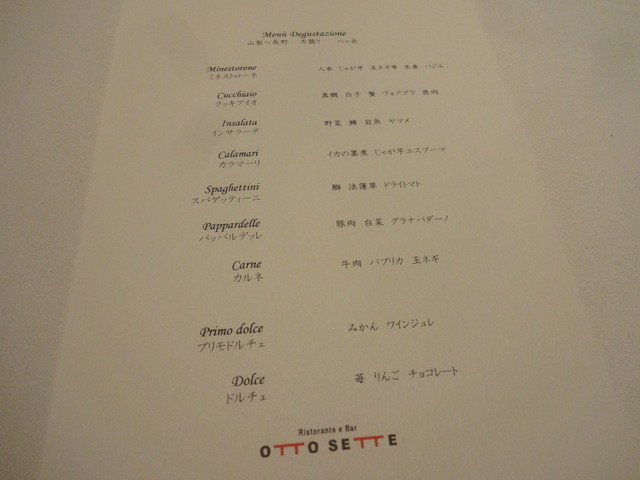 Menù Degustazione
山梨～長野 冬籠り 八ヶ岳
Minestorone 人参 じゃが芋 玉ネギ 生姜 バジル
ミネストローネ
Cucchiaio 真鯛 白子 蟹 フォアグラ 鹿肉
クッキアイオ
Insalata 野菜 鱒 岩魚 ヤマメ
インサラータ
Calamari イカの墨煮 じゃが芋エスプーマ
カラマーリ
Spaghettini 鰤 法蓮草 ドライトマト
スパゲッティーニ
Pappardelle 豚肉 白菜 グラナパダーノ
パッパルデッレ
Carne 牛肉 パプリカ 玉ネギ
カルネ
Primo dolce みかん ワインジュレ
プリモドルチェ
Dolce 苺 りんご チョコレート
ドルチェ
Ristorante e Bar
OTTO SETTE